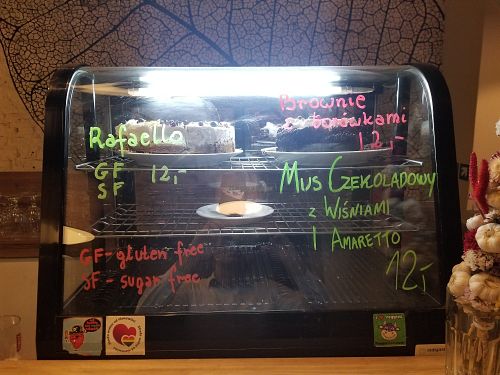 Rafaello
GF 12,-
SF
GF - gluten free
SF - sugar free
Brownie
z borówkami
12,-
Mus Czekoladowy
z Wiśniami
I Amaretto
12,-